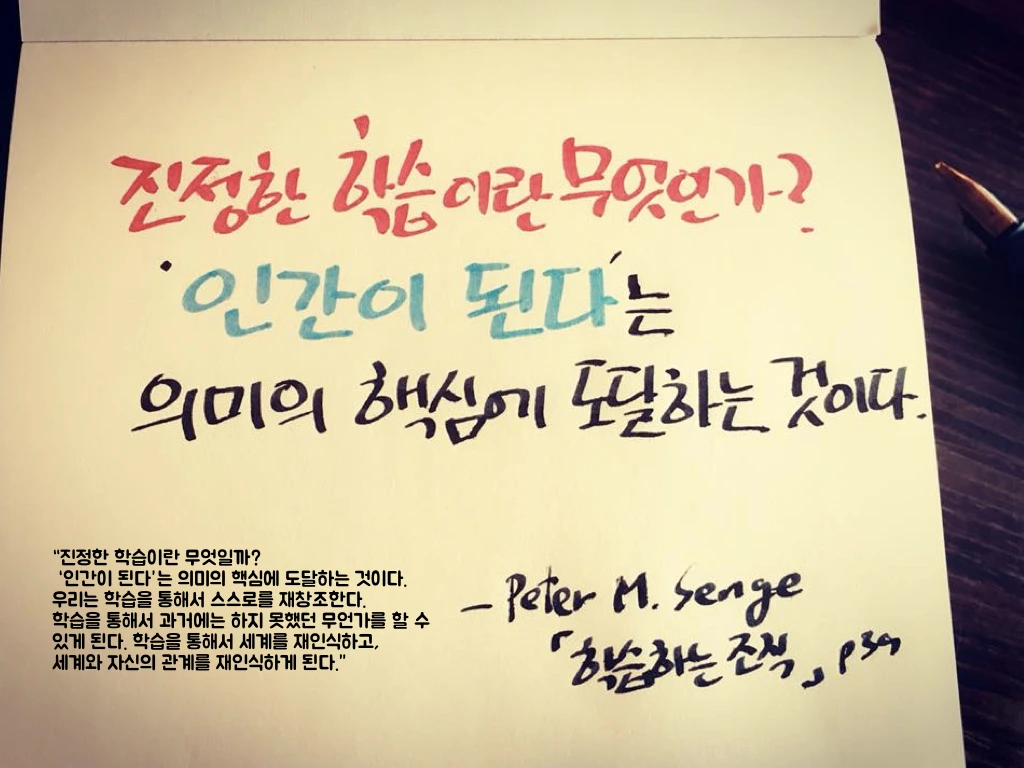 진정한 학습이란 무엇인가?
'인간이 된다'는
의미의 핵심에 도달하는 것이다.
"진정한 학습이란 무엇일까?
'인간이 된다'는 의미의 핵심에 도달하는 것이다.
우리는 학습을 통해서 스스로를 재창조한다.
학습을 통해서 과거에는 하지 못했던 무언가를 할 수
있게 된다. 학습을 통해서 세계를 재인식하고,
세계와 자신의 관계를 재인식하게 된다."
- Peter M. Senge
「학습하는 조직」 p39